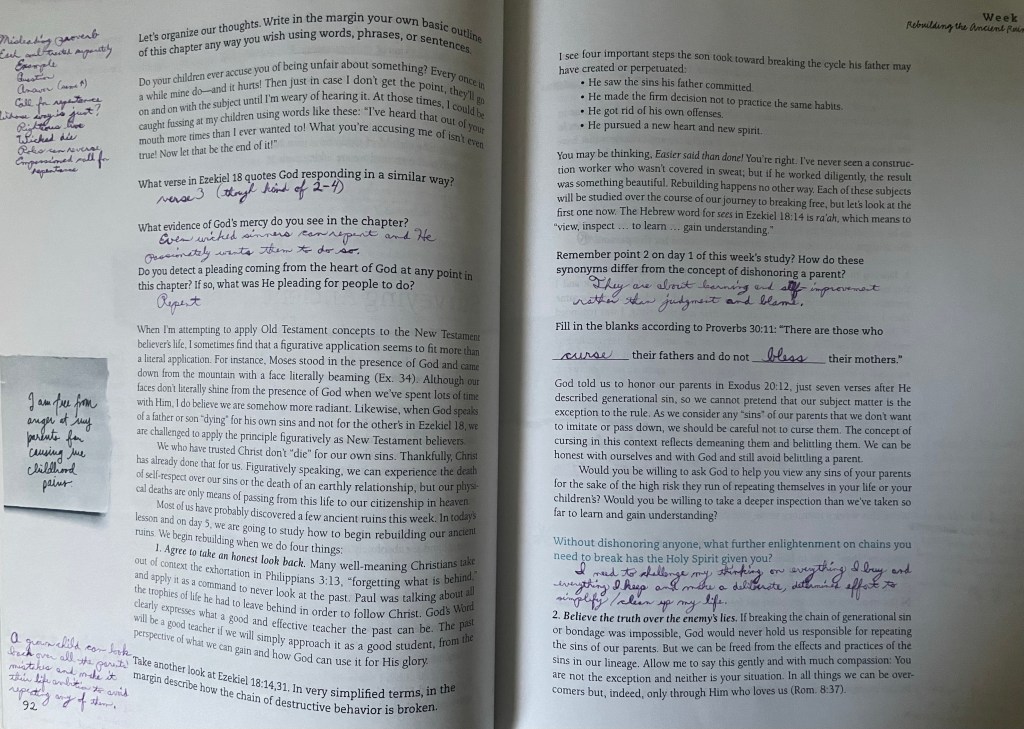 Misleading proverb
Each soul treated separately
Example
Question
Answer
Call for repentance
Whose way is just?
Righteous live
Wicked die
Roles can reverse
Impassioned call for
repentance
Let's organize our thoughts. Write in the margin your own basic outline
of this chapter any way you wish using words, phrases, or sentences.
Do your children ever accuse you of being unfair about something? Every once in
a while mine do—and it hurts! Then just in case I don't get the point, they'll go
on and on with the subject until I'm weary of hearing it. At those times, I could be
caught fussing at my children using words like these: "I've heard that out of your
mouth more times than I ever wanted to! What you're accusing me of isn't even
true! Now let that be the end of it!"
What verse in Ezekiel 18 quotes God responding in a similar way?
verse 3 (though kind of 2-4)
What evidence of God's mercy do you see in the chapter?
Even wicked sinners can repent and He
passionately wants them to do so.
Do you detect a pleading coming from the heart of God at any point in
this chapter? If so, what was He pleading for people to do?
Repent
When I'm attempting to apply Old Testament concepts to the New Testament
believer's life, I sometimes find that a figurative application seems to fit more than
a literal application. For instance, Moses stood in the presence of God and came
down from the mountain with a face literally beaming (Ex. 34). Although our
faces don't literally shine from the presence of God when we've spent lots of time
with Him, I do believe we are somehow more radiant. Likewise, when God speaks
of a father or son "dying" for his own sins and not for the other's in Ezekiel 18, we
are challenged to apply the principle figuratively as New Testament believers.
We who have trusted Christ don't "die" for our own sins. Thankfully, Christ
has already done that for us. Figuratively speaking, we can experience the death
of self-respect over our sins or the death of an earthly relationship, but our physi-
cal deaths are only means of passing from this life to our citizenship in heaven.
Most of us have probably discovered a few ancient ruins this week. In today's
lesson and on day 5, we are going to study how to begin rebuilding our ancient
ruins. We begin rebuilding when we do four things:
1. Agree to take an honest look back. Many well-meaning Christians take
out of context the exhortation in Philippians 3:13, "forgetting what is behind,"
and apply it as a command to never look at the past. Paul was talking about all
the trophies of life he had to leave behind in order to follow Christ. God's Word
clearly expresses what a good and effective teacher the past can be. The past
will be a good teacher if we will simply approach it as a good student, from the
perspective of what we can gain and how God can use it for His glory.
Take another look at Ezekiel 18:14,31. In very simplified terms, in the
margin describe how the chain of destructive behavior is broken.
I am free from
anger at my
parents for
causing me
childhood
pains.
A grown child can look
back over all the parents'
mistakes and make it
their life ambition to avoid
repeating any of them.
92
Week
Rebuilding the Ancient Ruin
I see four important steps the son took toward breaking the cycle his father may
have created or perpetuated:
• He saw the sins his father committed.
• He made the firm decision not to practice the same habits.
• He got rid of his own offenses.
• He pursued a new heart and new spirit.
You may be thinking, Easier said than done! You're right. I've never seen a construc-
tion worker who wasn't covered in sweat; but if he worked diligently, the result
was something beautiful. Rebuilding happens no other way. Each of these subjects
will be studied over the course of our journey to breaking free, but let's look at the
first one now. The Hebrew word for sees in Ezekiel 18:14 is ra'ah, which means to
"view, inspect ... to learn ... gain understanding."
Remember point 2 on day 1 of this week's study? How do these
synonyms differ from the concept of dishonoring a parent?
They are about learning and self-improvement
rather than judgment and blame.
Fill in the blanks according to Proverbs 30:11: "There are those who
curse their fathers and do not bless their mothers."
God told us to honor our parents in Exodus 20:12, just seven verses after He
described generational sin, so we cannot pretend that our subject matter is the
exception to the rule. As we consider any "sins" of our parents that we don't want
to imitate or pass down, we should be careful not to curse them. The concept of
cursing in this context reflects demeaning them and belittling them. We can be
honest with ourselves and with God and still avoid belittling a parent.
Would you be willing to ask God to help you view any sins of your parents
for the sake of the high risk they run of repeating themselves in your life or your
children's? Would you be willing to take a deeper inspection than we've taken so
far to learn and gain understanding?
Without dishonoring anyone, what further enlightenment on chains you
need to break has the Holy Spirit given you?
I need to challenge my thinking on everything I buy and
everything I keep and make a deliberate, determined effort to
simplify/clean up my life.
2. Believe the truth over the enemy's lies. If breaking the chain of generational sin
or bondage was impossible, God would never hold us responsible for repeating
the sins of our parents. But we can be freed from the effects and practices of the
sins in our lineage. Allow me to say this gently and with much compassion: You
are not the exception and neither is your situation. In all things we can be over-
comers but, indeed, only through Him who loves us (Rom. 8:37).